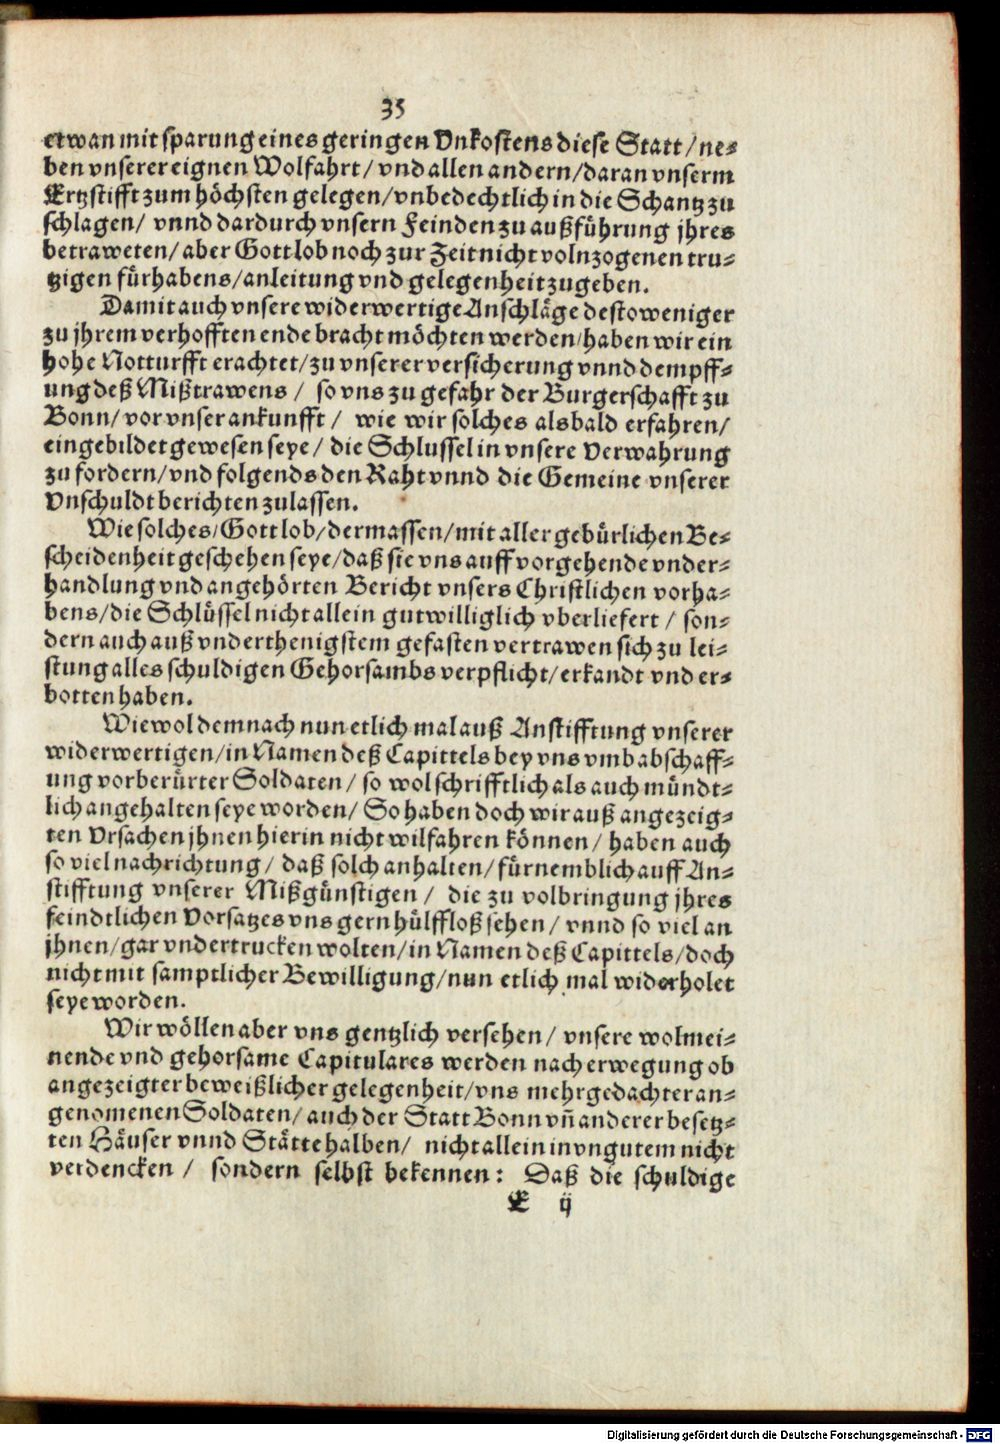 35
etwan mit sparung eines geringen Vnkostens diese Statt / ne-
ben vnserer eignen Wolfahrt / vnd allen andern / daran vnserm
Ertzstifft zum höchsten gelegen / vnbedechtlich in die Schantz zu
schlagen / vnnd dardurch vnsern Feinden zu außführung jhres
betraweten / aber Gott lob noch zur Zeit nicht volnzogenen tru-
tzigen fürhabens / anleitung vnd gelegenheit zugeben.
Damit auch vnsere widerwertige Anschläge desto weniger
zu jhrem verhofften ende bracht möchten werden / haben wir ein
hohe Notturfft erachtet / zu vnserer versicherung vnnd dempff-
ung deß Mißtrawens / so vns zu gefahr der Burgerschafft zu
Bonn / vor vnser ankunfft / wie wir solches alsbald erfahren /
eingebildet gewesen seye / die Schlussel in vnsere Verwahrung
zu fordern / vnd folgends den Raht vnnd die Gemeine vnserer
Vnschuldt berichten zulassen.
Wie solches / Gott lob / dermassen / mit aller gebürlichen Be-
scheidenheit geschehen seye / daß sie vns auff vorgehende vnder-
handlung vnd angehörten Bericht vnsers Christlichen vorha-
bens / die Schlüssel nicht allein gutwilliglich vberliefert / son-
dern auch auß vnderthenigstem gefasten vertrawen sich zu lei-
stung alles schuldigen Gehorsambs verpflicht / erkandt vnd er-
botten haben.
Wiewol demnach nun etlich mal auß Anstifftung vnserer
widerwertigen / in Namen deß Capittels bey vns vmb abschaff-
ung vorberürter Soldaten / so wol schrifftlich als auch mündt-
lich angehalten seye worden / So haben doch wir auß angezeig-
ten Vrsachen jhnen hierin nicht wilfahren können / haben auch
so viel nachrichtung / daß solch anhalten / fürnemblich auff An-
stifftung vnserer Mißgünstigen / die zu volbringung jhres
feindtlichen Vorsatzes vns gern hülffloß sehen / vnnd so viel an
jhnen / gar vndertrucken wolten / in Namen deß Capittels / doch
nicht mit samptlicher Bewilligung / nun etlich mal widerholet
seye worden.
Wir wöllen aber vns gentzlich versehen / vnsere wolmei-
nende vnd gehorsame Capitulares werden nach erwegung ob
angezeigter beweißlicher gelegenheit / vns mehrgedachter an-
genomenen Soldaten / auch der Statt Bonn vñ anderer besetz-
ten Häuser vnnd Stätte halben / nicht allein in vngutem nicht
verdencken / sondern selbst bekennen: Daß die schuldige
E ij
Digitalisierung gefördert durch die Deutsche Forschungsgemeinschaft - DFG